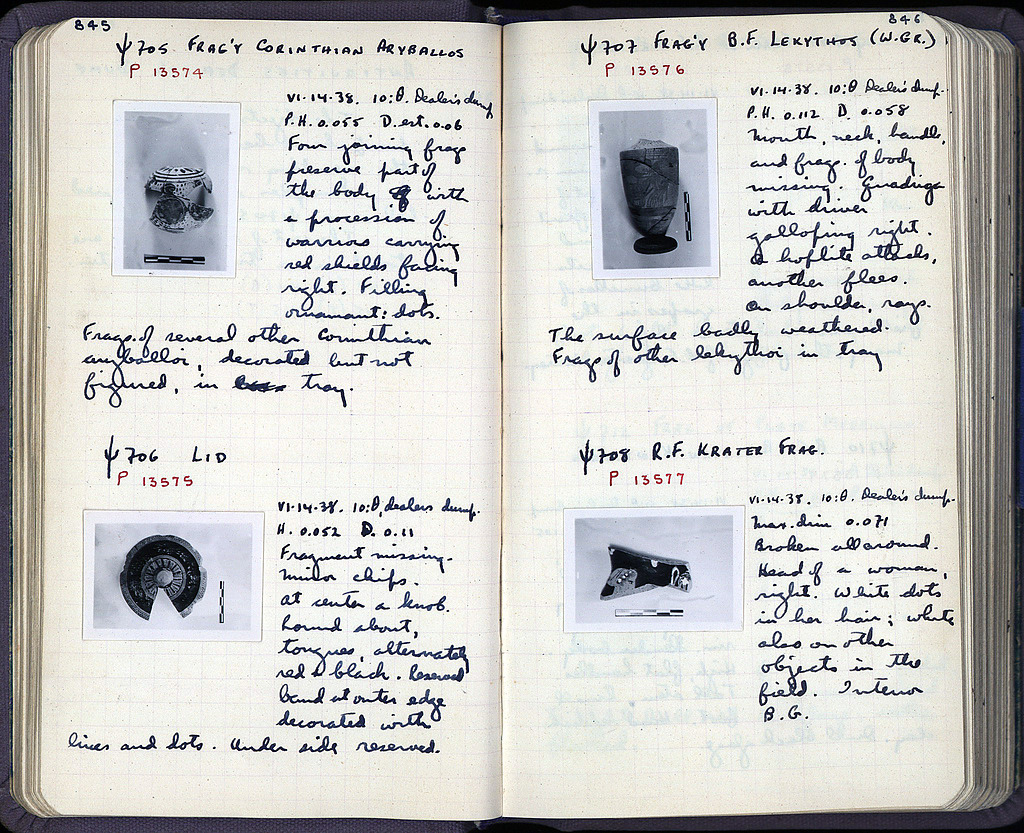 845
ψ705 FRAG'Y CORINTHIAN ARYBALLOS
P 13574
VI-14-38. 10:Θ Dealer's dump
P.H. 0.055 D. est. 0.06
Four joining frags
preserve part of
the body with
a procession of
warriors carrying
red shields facing
right. Filling
ornamant: dots.
Frags. of several other Corinthian
aryballoi, decorated but not
figured, in tray.
ψ706 LID
P 13575
VI-14-38. 10:Θ, dealers dump.
H. 0.052 D. 0.11
Fragment missing.
Minor chips.
At center a knob.
Round about,
tongues, alternately
red & black. Reserved
band at outer edge
decorated with
lines and dots. Under side reserved.
846
ψ707 FRAG'Y B.F. LEKYTHOS (W.GR.)
P 13576
VI-14-38. 10:Θ Dealer's dump.
P.H. 0.112 D. 0.058
Mouth, neck, handle,
and frags. of body
missing. Quadriga
with driver
galloping right.
A hoplite attacks,
another flees.
On shoulder, rays.
The surface badly weathered.
Frags of other lekythoi in tray
ψ708 R.F. KRATER FRAG.
P 13577
VI-14-38. 10:Θ. Dealer's dump.
Max. dim 0.071
Broken all around.
Head of a woman,
right. White dots
in her hair; white
also on other
objects in the
field. Interior
B.G.